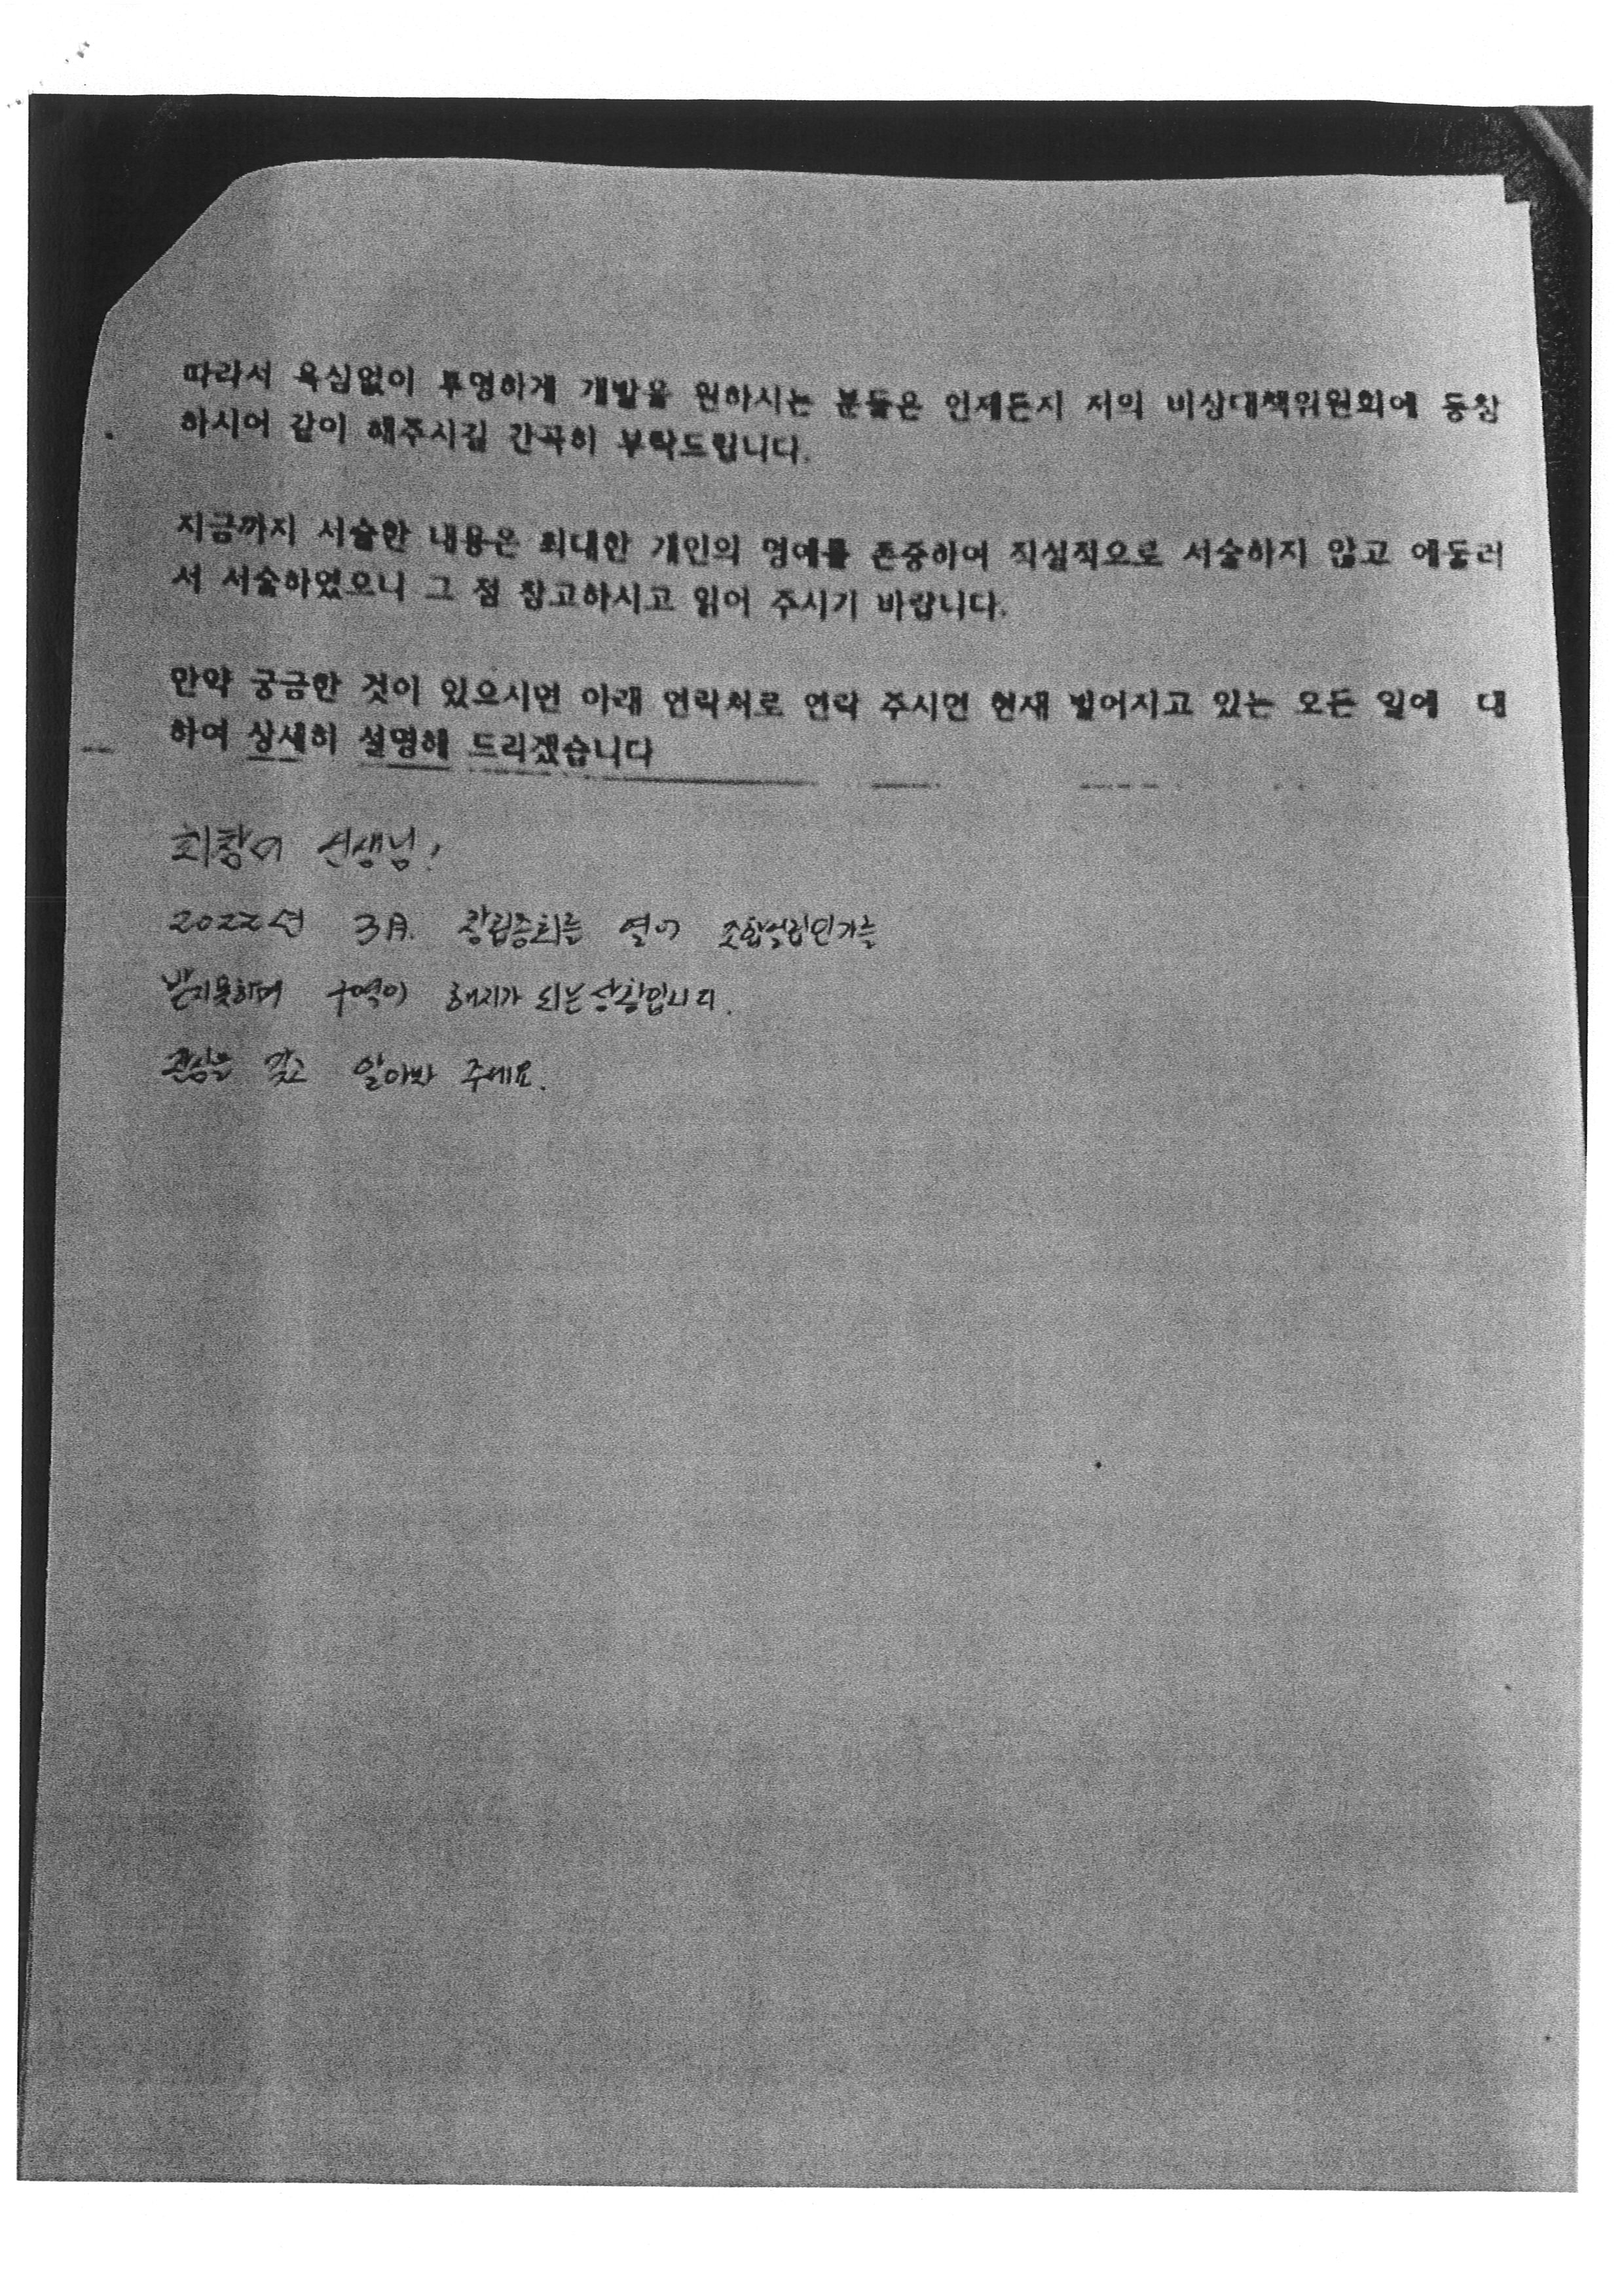 따라서 욕심없이 투명하게 개발을 원하시는 분들은 언제든지 저의 비상대책위원회에 동참
하시어 같이 해주시길 간곡히 부탁드립니다.
지금까지 서술한 내용은 최대한 개인의 명예를 존중하여 직설적으로 서술하지 않고 에둘러
서 서술하였으니 그 점 참고하시고 읽어 주시기 바랍니다.
만약 궁금한 것이 있으시면 아래 연락처로 연락 주시면 현재 벌어지고 있는 모든 일에 대
하여 상세히 설명해 드리겠습니다
선생님!
2022년 3月. 창립총회를 열어 조합설립인가를
받지못하며 구역이 해지가 되는 상황입니다.
관심을 갖고 알아봐 주세요.